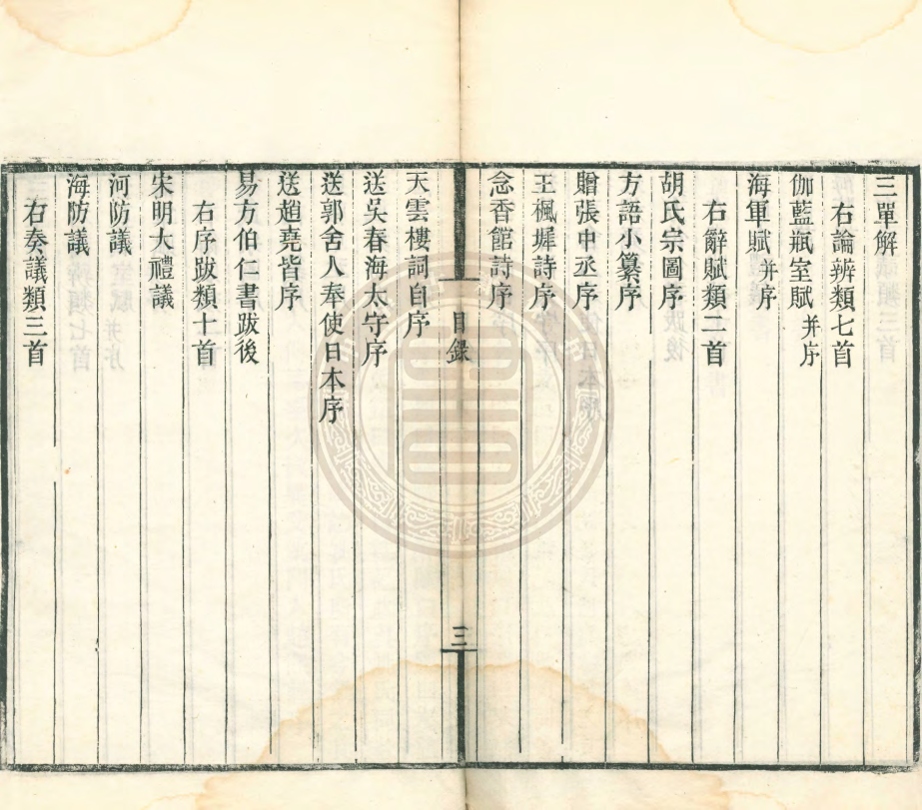 三單解
右論辨類七首
伽藍瓶室賦并序
海軍賦并序
右辭賦類二首
胡氏宗圖序
方語小纂序
贈張中丞序
王楓墀詩序
念香館詩序
目錄
三
天雲樓詞自序
送吳春海太守序
送郭舍人奉使日本序
送趙堯皆序
易方伯仁書跋後
右序跋類十首
宋明大禮議
河防議
海防議
右奏議類三首